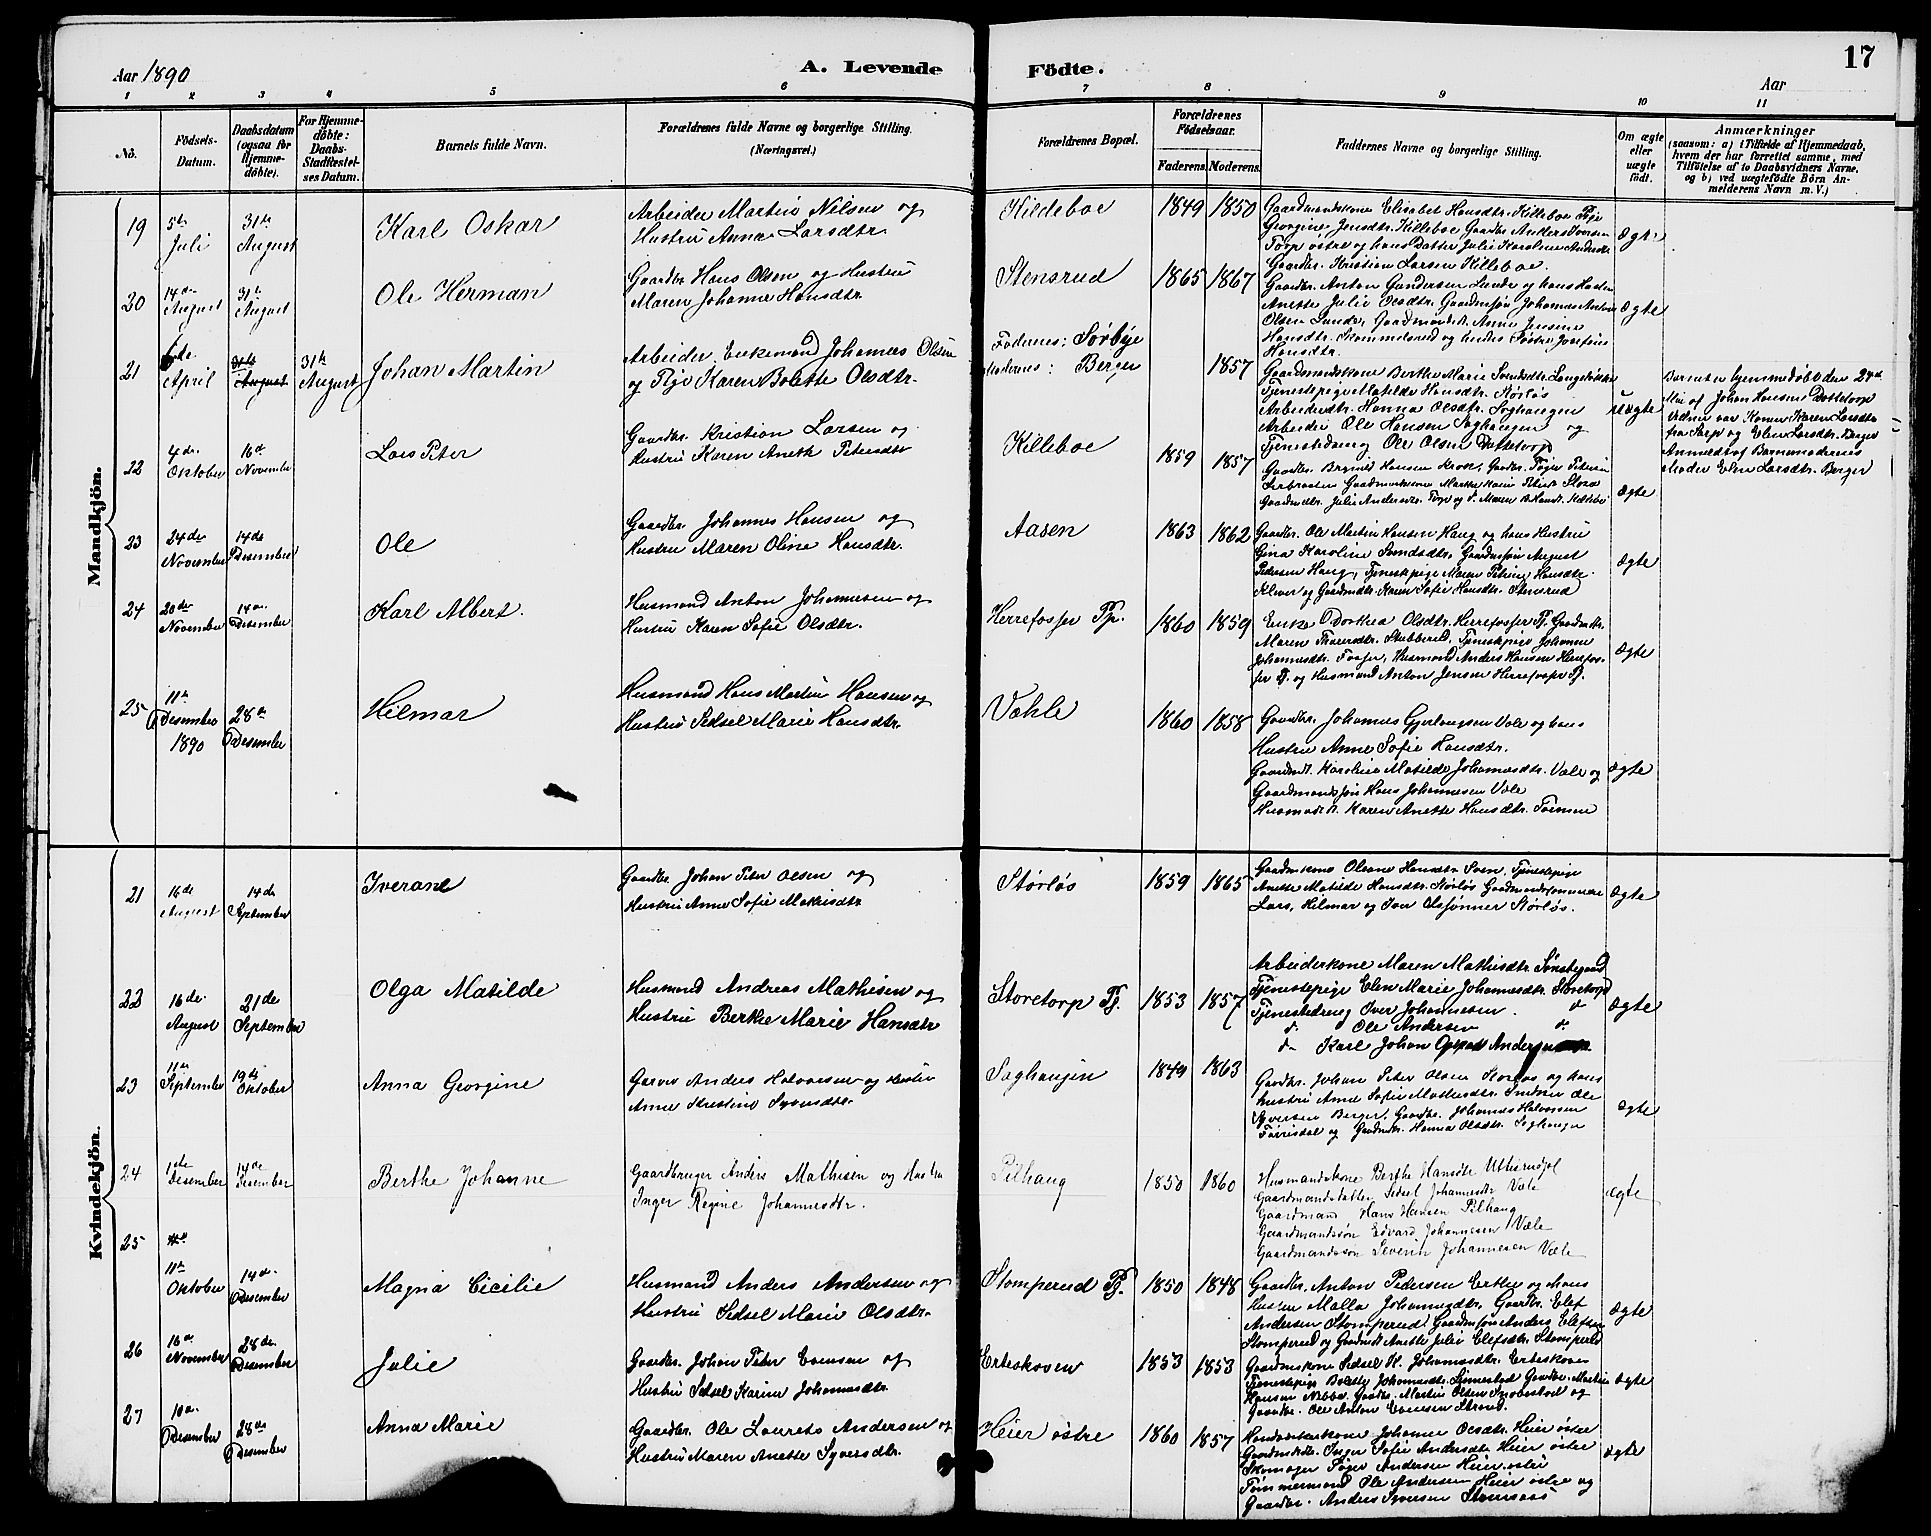 17
Aar 1890
A. Levende Födte.
Aar
1 2 3 4 5 6 7 8 9 10 11
No.
Födsels-Datum.
Daabsdatum (ogsaa for Hjemmedöbte).
For Hjemmedöbte: Daabs-Stadfæstelses Datum.
Barnets fulde Navn.
Forældrenes fulde Navne og borgerlige Stilling. (Næringsvei.)
Forældrenes Bopæl.
Forældrenes Födselsaar.
Faderens. Moderens.
Faddernes Navne og borgerlige Stilling.
Om ægte eller uægte födt.
Anmærkninger (saasom: a) i Tilfælde af Hjemmedaab, hvem der har forrettet samme, med Tilföielse af to Daabsvidners Navne. og b) ved uægtefödte Börn Anmelderens Navn m. V.)
Mandkjön.
19 5te Juli 31te August Karl Oskar
Arbeider Martin Nilsen og
Hustru Anna Larsdtr.
Kildeboe 1849 1850
Gaardmandskone Elisabet Hansdtr. Killeboe Pige
Georgine Jensdtr. Killeboe Gaardbr. Anders Iversen
Torp østre og hans Datter Julie Karoline Andersdtr.
Gaardbr. Kristian Larsen Killeboe.
ægte
20 14de August 31te August Ole Herman
Gaardbr. Hans Olsen og Hustru
Maren Johanne Hansdtr.
Stensrud 1865 1867
Gaardbr. Anton Gundersen Lunde og hans Hustru
Anette Julie Olsdtr. Gaardmsøn Johannes Anton
Olsen Lunde, Gaardmandsk. Anne Jensine
Hansdtr. Skammelsrud og hendes Søster Josefine
Hansdtr.
ægte
21 April 31te August 31te August Johan Martin
Arbeider, Enkemand Johannes Olsen
og Pige Karen Bolette Olsdtr.
Faderens: Sørbye
Moderens: Berger
1857
Gaardmandskone Berthe Marie Svendsdtr.
Tjenestepige Matilde Hansdtr. Størløs
Arbeiderdtr. Hanna Olsdtr. Saghaugen
Arbeider Ole Hansen Saghaugen og
Tjenestedreng Ole Olsen Dottetorp
uægte
Barnet er hjemmedøbt den 24de
Mai af Johan Hansen Dottetorp
Vidner var Konen Karen Larsdtr.
fra Torp og Elen Larsdtr. Berger
Anmeldt af Barnemoderens
Moder Elen Larsdtr. Berger
22 4de Oktober 16de November Lars Peter
Gaardbr. Kristian Larsen og
Hustru Karen Anette Petersdtr
Killeboe 1859 1857
ægte
23 24de November 14de Desember Ole
Gaardbr. Johannes Hansen og
Hustru Maren Oline Hansdtr.
Aasen 1863 1862
Gaardbr. Ole Martin Hansen Haug og hans Hustru
Gina Karoline Svendsdtr. Gaardmsøn August
Pedersen Haug, Tjenestepige Maren Petrine Hansdtr.
Klever og Gaardmdtr. Karen Sofie Hansdtr. Stensrud
ægte
24 20de November 14de Desember Karl Albert.
Husmand Anton Johannesen og
Hustru Karen Sofie Olsdtr.
Herrefosser Pp. 1860 1859
Enke Dorthea Olsdtr. Herrefosser Pl. Gaardmdtr.
Maren Thoresdtr. Stubberud, Tjenestepige Johanne
Johannesdtr. Fosser, Husmand Anders Hansen Herrefos-
ser Pl. og Husmand Anton Jensen Herrefosser Pl.
ægte
25 11te Desember 1890 28de Desember Hilmar
Husmand Hans Martin Hansen og
Hustru Sedsel Marie Hansdtr.
Vahle 1860 1858
Gaardbr. Johannes Gjerlaugsen Vale og hans
Hustru Anne Sofie Hansdtr.
Gaardmdt. Karoline Matilde Johannesdtr. Vale og
Gaardmandssøn Hans Johannesen Vale
Husmdt. Karen Anette Hansdtr. Tømme
ægte
Kvindekjön.
21 16de August 14de September Iverane
Gaardbr. Johan Peter Olsen og
Hustru Anne Sofie Mathisdtr.
Størløs 1859 1865
Gaardmkone Olsine Hansdtr. Tjenestepige
Anette Matilde Hansdtr. Størløs Gaardmandssønnerne
Lars, Hilmar og Ivar Olssønner Størløs.
ægte
22 16de August 21de September Olga Matilde
Husmand Andreas Mathisen og
Hustru Berthe Marie Hansdtr
Storetorp Pl. 1853 1857
Arbeiderkone Maren Mathisdtr. Sønstegaard
Tjenestepige Elen Marie Johannesdtr. Storetorp
Tjenestedreng Over Johannesen. do
do Ole Andersen do
do Karl Johan Andersen
ægte
23 11te September 19de Oktober Anna Georgine
Garver Anders Halvorsen og Hustru
Anne Kristine Syversdtr.
Saghaugen 1849 1863
Gaardbr. Johan Peter Olsen Størløs og hans
Hustru Anne Sofie Mathisdtr. Snedker Ole
Syversen Berger, Gaardbr. Johannes Halvorsen
og Gaardmdtr. Hanna Olsdtr. Saghaugen
ægte
24 1de Desember 14de Desember Berthe Johanne
Gaardbruger Anders Mathisen og Hustru
Inger Regine Johannesdtr.
Pilhaug 1850 1860
Husmandskone Berthe Hansdtr
Gaardmandsdatter Sedsel Johannesdtr Vale
Gaardmand Hans Hansen Pilhaug
Gaardmandssøn Edvard Johannesen Vale
Gaardmandssøn Severin Johannesen Vale
ægte
25 11te Oktober 14de Desember Magna Cicilie
Husmand Anders Andersen og
Hustru Sedsel Marie Olsdtr.
Stomperud Pl. 1850 1848
Gaardbr. Anton Pedersen Erthe og hans
Hustru Malla Johannesdtr. Gaardbr. Elef
Andersen Stomperud, Gaardmsøn Anders Elefsen
Stomperud og Gaardmdt Anette Julie Elefsdtr. Stomperud
ægte
26 16de November 28de Desember Julie
Gaardbr. Johan Peter Evensen og
Hustru Sedsel Karine Johannesdtr.
Erteskoven 1853 1853
Gaardmskone Sedsel K. Johannesdtr. Erteskoven
Tjenestepige Bolette Johannesdtr. Gaardbr. Martin
Hansen Nebba. Gaardbr. Martin Olsen og
Gaardbr. Ole Anton Evensen Strand.
ægte
27 10de Desember 28de Desember Anna Marie
Gaardbr. Ole Laurets Andersen og
Hustru Maren Anette Syversdtr.
Heier østre 1860 1857
Johanne Olsdtr. Heier østre
Gaardmdtr. Inger Sofie Andersdtr. Heier østre
Skomager Peder Andersen Heier østre
Tømmermand Ole Andersen Heier østre og
Gaardbr. Anders Syversen
ægte